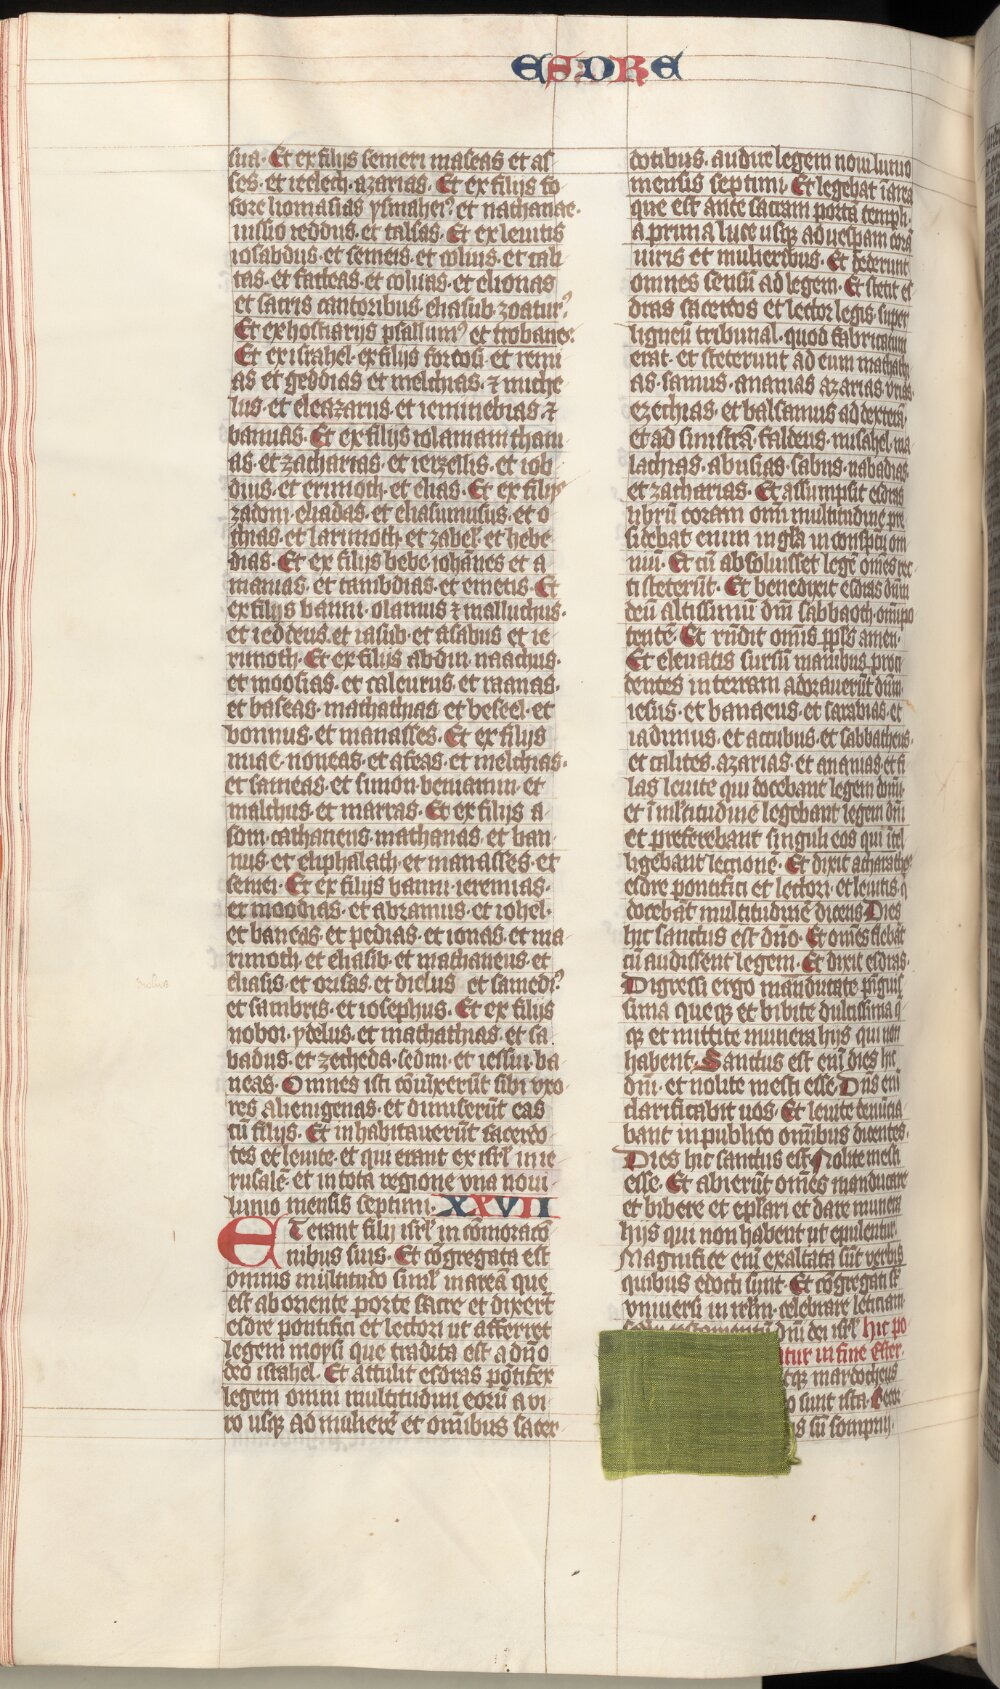 ESDRE
sua. Et ex filijs semeri maseas et as
ses. et ieelech. azarias. Et ex filijs fo
sore liomasias ysmahel9 et nathanae.
iussio reddus. et talsas. Et ex leuitis
iosabdus. et semeis. et colius. et cali
tas. et facteas. et coluas. et elionas
et sacris cantoribus. eliasub. zoatur9
Et ex hostiarijs psallum9 et trobanes.
Et ex israhel. ex filijs forcosi. et remi
as et geddias et melchias. ⁊ miche
lus. et eleazarus. et ieminebias ⁊
bannas. Et ex filijs iolamam chani
as. et zacharias. et ierzellis. et iob
dius. et erimoth. et elias. Et ex filijs
zadom. eliadas. et eliasumusus. et o
thias. et larimoth. et zabel. et hebe
dias. Et ex filijs bebe. iohānes et a
manias. et tambdias. et emetis. Et
ex filijs banni. olamus ⁊ malluchus.
et ieddeus. et iasub. et asabus et ie
rimoth. Et ex filijs abdin. naachus.
et moosias. et caleurus. et raanas.
et baseas. mathathias et beseel. et
bonnus. et manasses. Et ex filijs
nuae. noneas. et aseas. et melchias.
et sameas. et simon. beniamin. et
malchus. et marras. Et ex filijs a
som. cathaneus. mathanas. et ban
nus. et eliphalath. et manasses. et
semei. Et ex filijs banni. ieremias.
et moodias. et abramus. et iohel.
et baneas. et pedias. et ionas. et ma
rimoth. et eliasib. et mathaneus. et
eliasis. et orisas. et dielus et samedi9
et sambris. et iosephus. Et ex filijs
noboi. ydelus. et mathathias. et sa
badus. et zecheda. sedmi. et iessiu. ba
neas. Omnes isti cōuixerūt sibi uxo
res alienigenas. et dimiserūt eas
cū filijs. Et inhabitauerūt sacerdo
tes et leuite. et qui erant ex isrl' in ie
rusalē. et in tota regione una noui
lunio mensis septimi. XXVII
ET erant filij isrl' in cōmoracō
nibus suis. Et cōgregata est
omnis multitudo siml' in areā que
est ab oriente porte sacre et dixerūt
esdre pontifici et lectori ut afferret
legem moysi que tradita est a dn̄o
deo israhel. Et attulit esdras pōtifex
legem omni multitudini eorū a vi
ro usq̄ ad mulierē et omībus sacer
dotibus. audire legem nouilunio
mensis septimi. Et legebat ī area
que est ante sacram portā templi.
a prima luce usq̄ ad uesperam corā
uiris et mulieribus. Et dederunt
omnes sensū ad legem. Et stetit es
dras sacerdos et lector legis super
ligneū tribunal. quod fabricatum
erat. et steterunt ad eum mathathi
as. samus. ananias azarias. vrias.
ezechias. et balsamus ad dexterā.
et ad sinistrā. faldeus. misahel. ma
lachias. abusias. sabus. nabadias
et zacharias. Et assumpsit esdras
librū coram omī multitudine. pre
sidebat enim in glīa in conspectu om
niū. Et cū absoluisset legē omēs rec
ti steterūt. Et benedixit esdras dn̄m
deū altissimū dn̄m sabbaoth. omnipo
tentē. Et rn̄dit omīs ppl's amen.
Et eleuatis sursū manibus. proci
dentes in terram adorauerūt dn̄m
iesus. et banaeus. et sarabias. et
iadimus. et accubus. et sabbatheus.
et calites. azarias. et ananias. et fi
las leuite qui docebant legem domī.
et ī ml'titudine legebant legem dn̄i
et preferebant singuli eos qui ītel
ligebant lectionē. Et dixit acharathes
esdre pontifici et lectori. et leuitis. q̄
docebāt multitudinē dicens Dies
hic sanctus est dn̄o. Et omēs flebāt
cū audissent legem. Et dixit esdras.
Digressi ergo manducate pīguis
sima queq̄ et bibite dulcissima q̄
q̄ et mittite munera hijs qui non
habent. Sanctus est enī dies hic
dn̄i. et nolite mesti esse. Dn̄s enī
clarificabit uos. Et leuite denūcia
bant in publico omībus dicentes.
Dies hic sanctus est. Nolite mesti
esse. Et abierūt omēs manducare
et bibere et epl'ari et dare munera
hijs qui non habent ut epulentur.
Magnifice enī exaltata sūt verbis
quibus edocti sunt. Et cōgregati sūt
vniuersi in irl'm. celebrare leticiam.
dn̄i dei isrl' Hic po
tur in fine Ester.
tq̄ mardocheus
o sunt ista.
s sū sompnij.